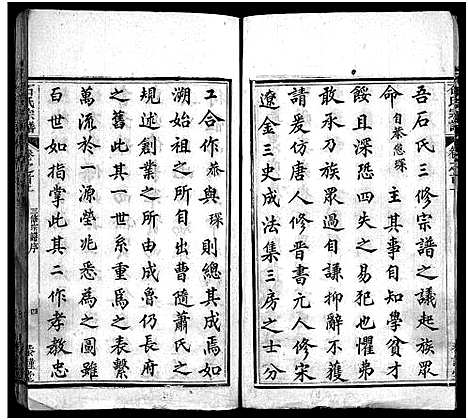 吾石氏三修宗譜之議起族眾
命自恭愈琛主其事自知學貧才
餒且深恐四失之易犯也懼弗
敢承乃族眾過自謙抑辭不獲
請爰仿唐人修晉書元人修宋
遼金三史成法集三房之士分
工合作恭與琛則總其成焉如
溯始祖之所自出曹隨蕭氏之
規述創業之所由成魯仍長府
之舊此其一世系重為之表繫
萬流於一源塋兆悉為之圖雖
百世如指掌此其二作孝教忠
石氏宗譜
三修宗譜序
四